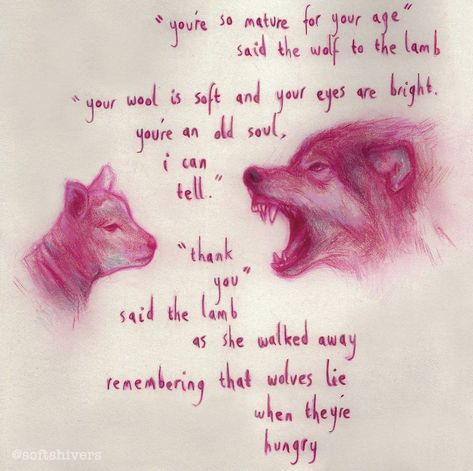 "you're so mature for your age"
said the wolf to the lamb
"your wool is soft and your eyes are bright.
you're an old soul,
i can
tell."
"thank
you"
said the lamb
as she walked away
remembering that wolves lie
when they're
hungry
@softshivers